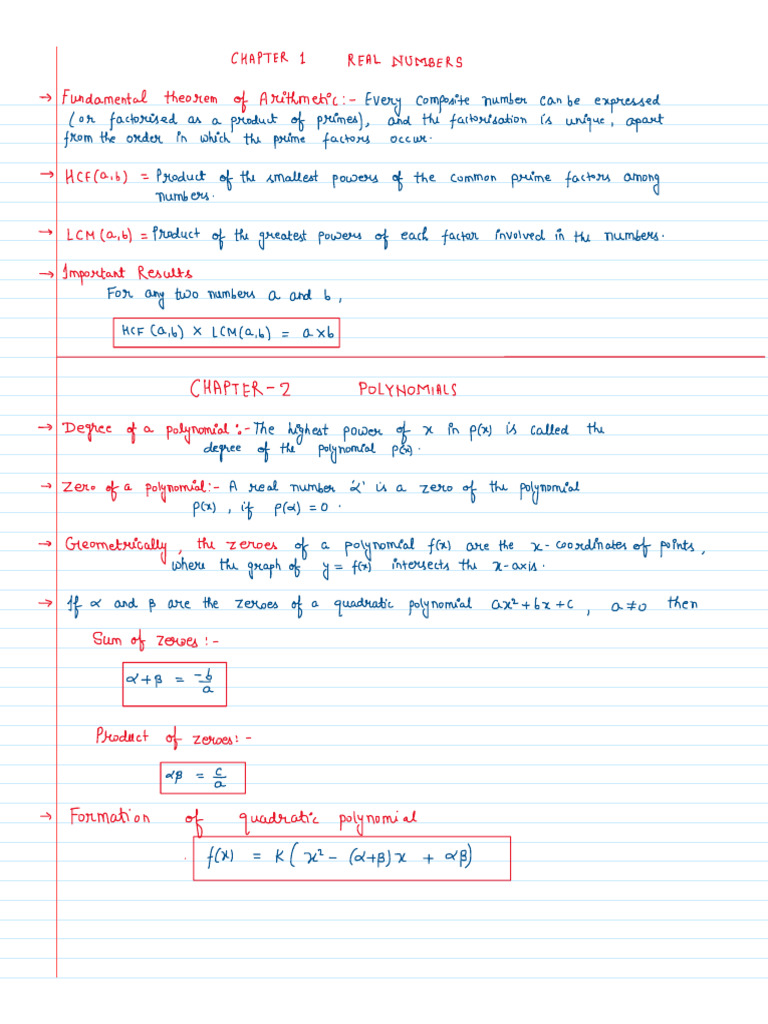 CHAPTER 1 REAL NUMBERS
→ Fundamental theorem of Arithmetic:- Every composite number can be expressed
(or factorised as a product of primes), and the factorisation is unique, apart
from the order in which the prime factors occur.
→ HCF(a,b) = Product of the smallest powers of the common prime factors among
numbers.
→ LCM(a,b) = Product of the greatest powers of each factor involved in the numbers.
→ Important Results
For any two numbers a and b,
HCF(a,b) × LCM(a,b) = a×b
CHAPTER-2 POLYNOMIALS
→ Degree of a polynomial:- The highest power of x in p(x) is called the
degree of the polynomial p(x).
→ Zero of a polynomial:- A real number 'α' is a zero of the polynomial
p(x), if p(α) = 0.
→ Geometrically, the zeroes of a polynomial f(x) are the x-coordinates of points,
where the graph of y = f(x) intersects the x-axis.
→ If α and β are the zeroes of a quadratic polynomial ax²+bx+c, a≠0 then
Sum of zeroes:-
α+β = -b/a
Product of zeroes:-
αβ = c/a
→ Formation of quadratic polynomial
f(x) = K(x² - (α+β)x + αβ)